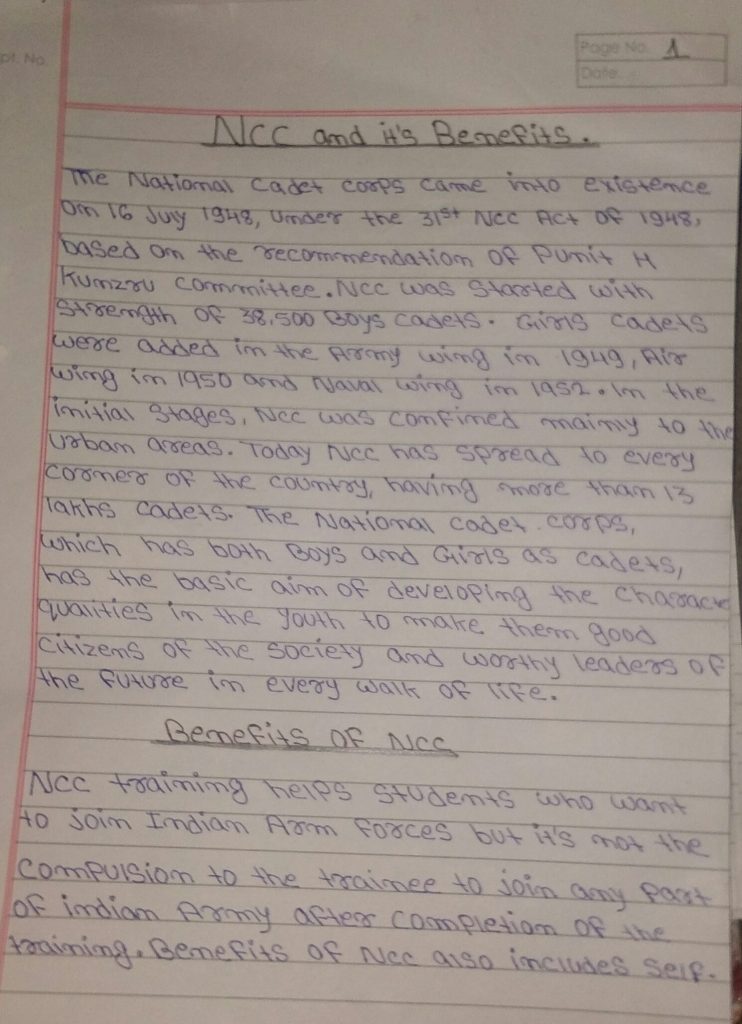 pt. No.
Page No. 1
Date
NCC and it's Benefits.
The National Cadet Corps came into existence
on 16 July 1948, under the 31st NCC Act of 1948,
based on the recommendation of Punit H
Kunzru committee. NCC was Started with
Strength of 38,500 Boys cadets. Girls cadets
were added in the Army wing in 1949, Air
wing in 1950 and Naval wing in 1952. In the
initial stages, NCC was confined mainly to the
urban areas. Today NCC has spread to every
corner of the country, having more than 13
lakhs cadets. The National cadet corps,
which has both Boys and Girls as cadets,
has the basic aim of developing the Characte
qualities in the youth to make them good
citizens of the society and worthy leaders of
the future in every walk of life.
Benefits of NCC
NCC training helps students who want
to join Indian Arm forces but it's not the
compulsion to the trainee to join any part
of indian Army after completion of the
training. Benefits of NCC also includes Self-